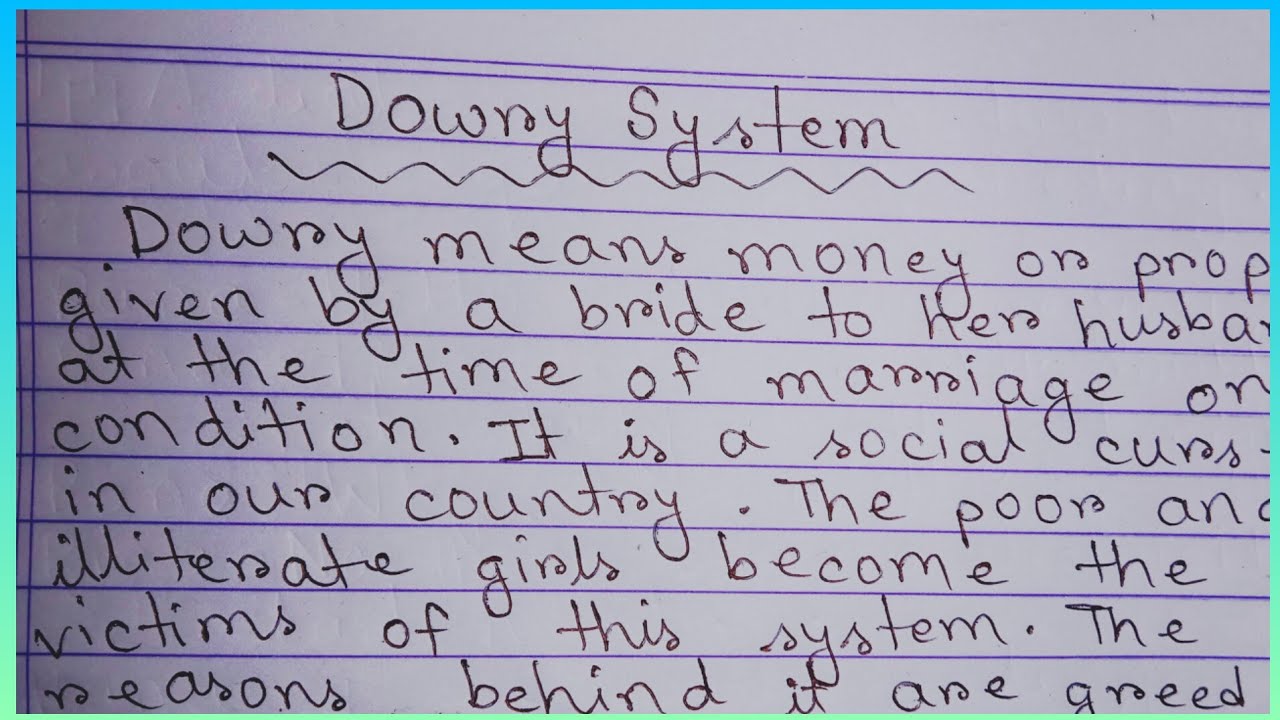 Dowry System
Dowry means money or prop
given by a bride to Her husba
at the time of marriage on
condition. It is a social curs
in our country. The poor and
illiterate girls become the
victims of this system. The
reasons behind it are greed